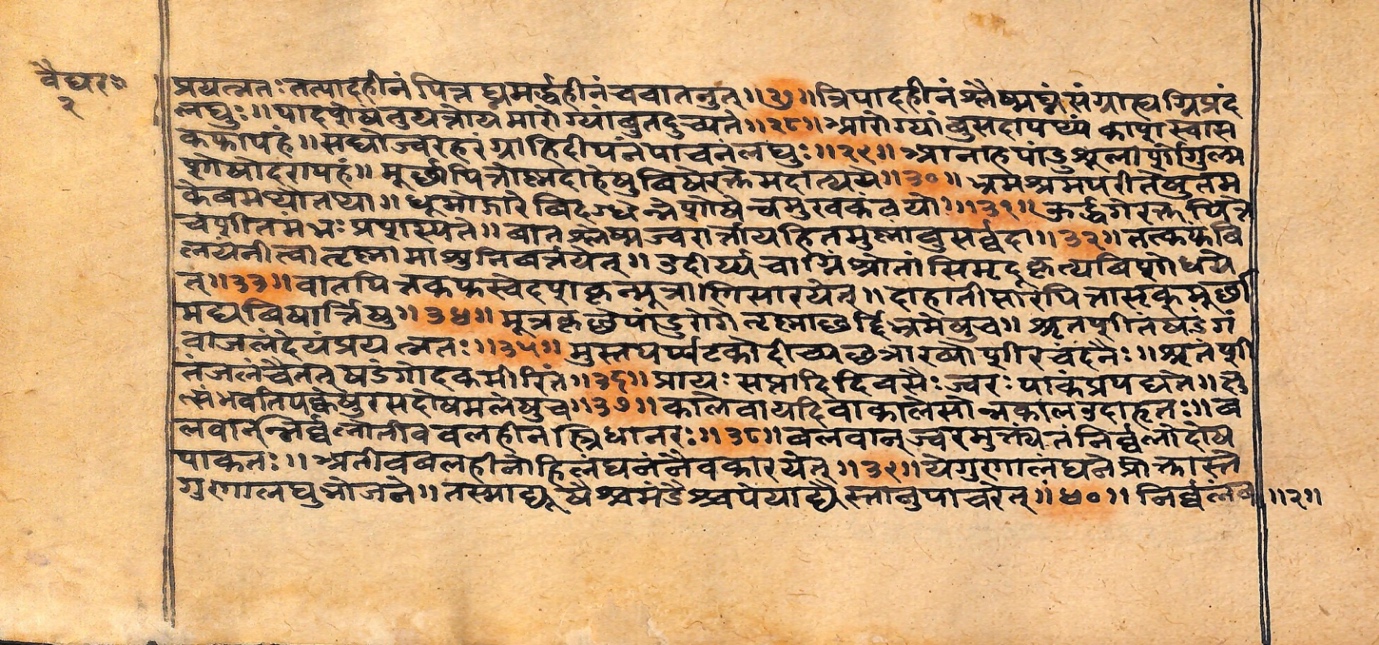 वैद्यर॰
२
प्रयत्नतः तत्पादहीनं पित्तघ्नमर्द्धहीनं चवातनुत् ॥२७॥ त्रिपादहीनं श्लैष्मघ्नं संग्राह्यग्निप्रदं
लघुः ॥ पादशेषंतुयत्तोयमारोग्यांबुतदुच्यते ॥२८॥ आरोग्यांबुसदापथ्यं काशस्वास
कफापहं ॥ सद्योज्वरहरंग्राहिदीपनंपाचनंलघुः ॥२९॥ आनाहपांडुशूलार्शोगुल्म
शोषोदरापहं ॥ मूर्छापित्तोष्मदाहेषुविषेरक्तेमदात्यये ॥३०॥ भ्रमश्रमपरीतेषुतम
केवमथौतथा ॥ धूमोद्गारेविदग्धेन्नेशोषेचमुखकंठयोः ॥३१॥ ऊर्द्धगेरक्तपित्ते
चशीतमंभः प्रशस्यते ॥ वातश्लेष्मज्वरार्त्तायहितमुष्णांबुसर्वदा ॥३२॥ तत्कफंवि
लयंनीत्वातृष्णामाशुनिवर्त्तयेत् ॥ उदीर्य्यचाग्निंश्रोतांसिमृदूकृत्यविशोधये
त् ॥३३॥ वातपित्तकफस्वेदशकृन्मूत्राणिसारयेत् ॥ दाहातीसारपित्तासृक्मूर्छा
मद्यविषार्त्तिषु ॥३४॥ मूत्रकृछ्रेपांडुरोगेतृष्णाछर्द्दिभ्रमेषुच ॥ शृतशीतंषडंगं
वाजलंदेयंप्रयत्नतः ॥३५॥ मुस्तपर्प्पटकोदीच्यछत्राख्योशीरचंदनैः ॥ शृतंशी
तंजलंचैतत्षडंगोदकमीरितं ॥३६॥ प्रायः सप्तादिदिवसैः ज्वरः पाकंप्रपद्यते ॥
भवतिपक्वेषुरसदोषमलेषुच ॥३७॥ कालेवायदिवाकालेसोन्नकालउदाहृतः ॥ ब
लवान्निर्बलोतीवबलहीनस्त्रिधानरः ॥३८॥ बलवान्ज्वरमुक्त्यंतंनिर्बलोदोष
पाकतः ॥ अतीवबलहीनोहिलंघनंनैवकारयेत् ॥३९॥ येगुणालंघनेप्रोक्तास्ते
गुणालघुभोजने ॥ तस्माद्यूषैश्चमंडैश्चपेयाद्यैस्तानुपाचरेत् ॥४०॥ निर्बलंवि ॥२॥